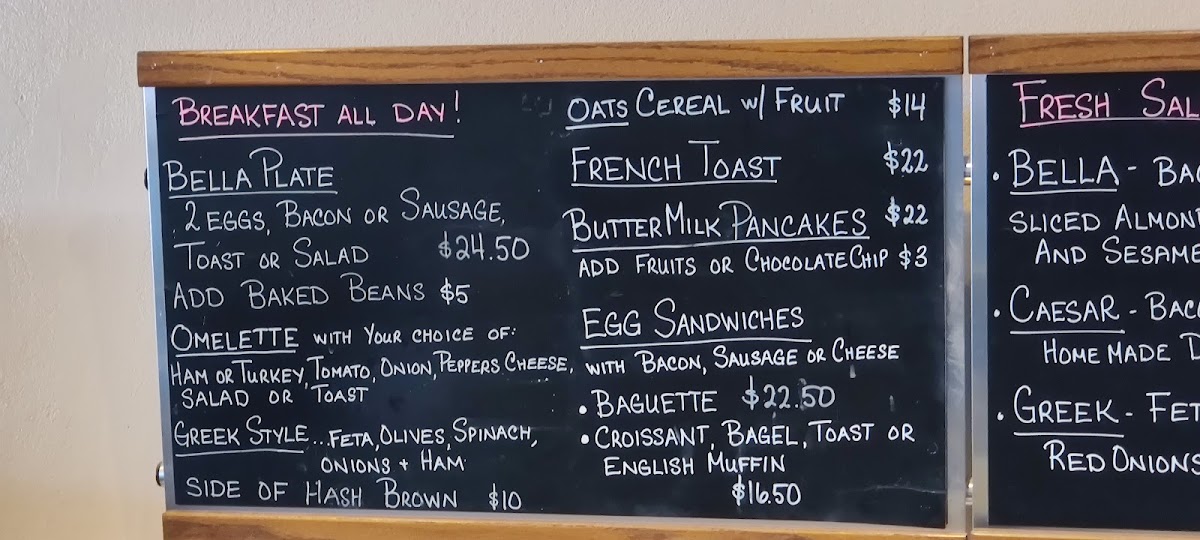 BREAKFAST ALL DAY!
BELLA PLATE
2 EGGS, BACON OR SAUSAGE,
TOAST OR SALAD $24.50
ADD BAKED BEANS $5
OMELETTE WITH YOUR CHOICE OF:
HAM OR TURKEY, TOMATO, ONION, PEPPERS CHEESE,
SALAD OR TOAST
GREEK STYLE... FETA, OLIVES, SPINACH,
ONIONS + HAM
SIDE OF HASH BROWN $10
OATS CEREAL W/ FRUIT $14
FRENCH TOAST $22
BUTTERMILK PANCAKES $22
ADD FRUITS OR CHOCOLATE CHIP $3
EGG SANDWICHES
WITH BACON, SAUSAGE OR CHEESE
• BAGUETTE $22.50
• CROISSANT, BAGEL, TOAST OR
ENGLISH MUFFIN
$16.50
FRESH SAL
• BELLA - BA
SLICED ALMON
AND SESAME
• CAESAR - BAC
HOME MADE D
• GREEK - FET
RED ONIONS